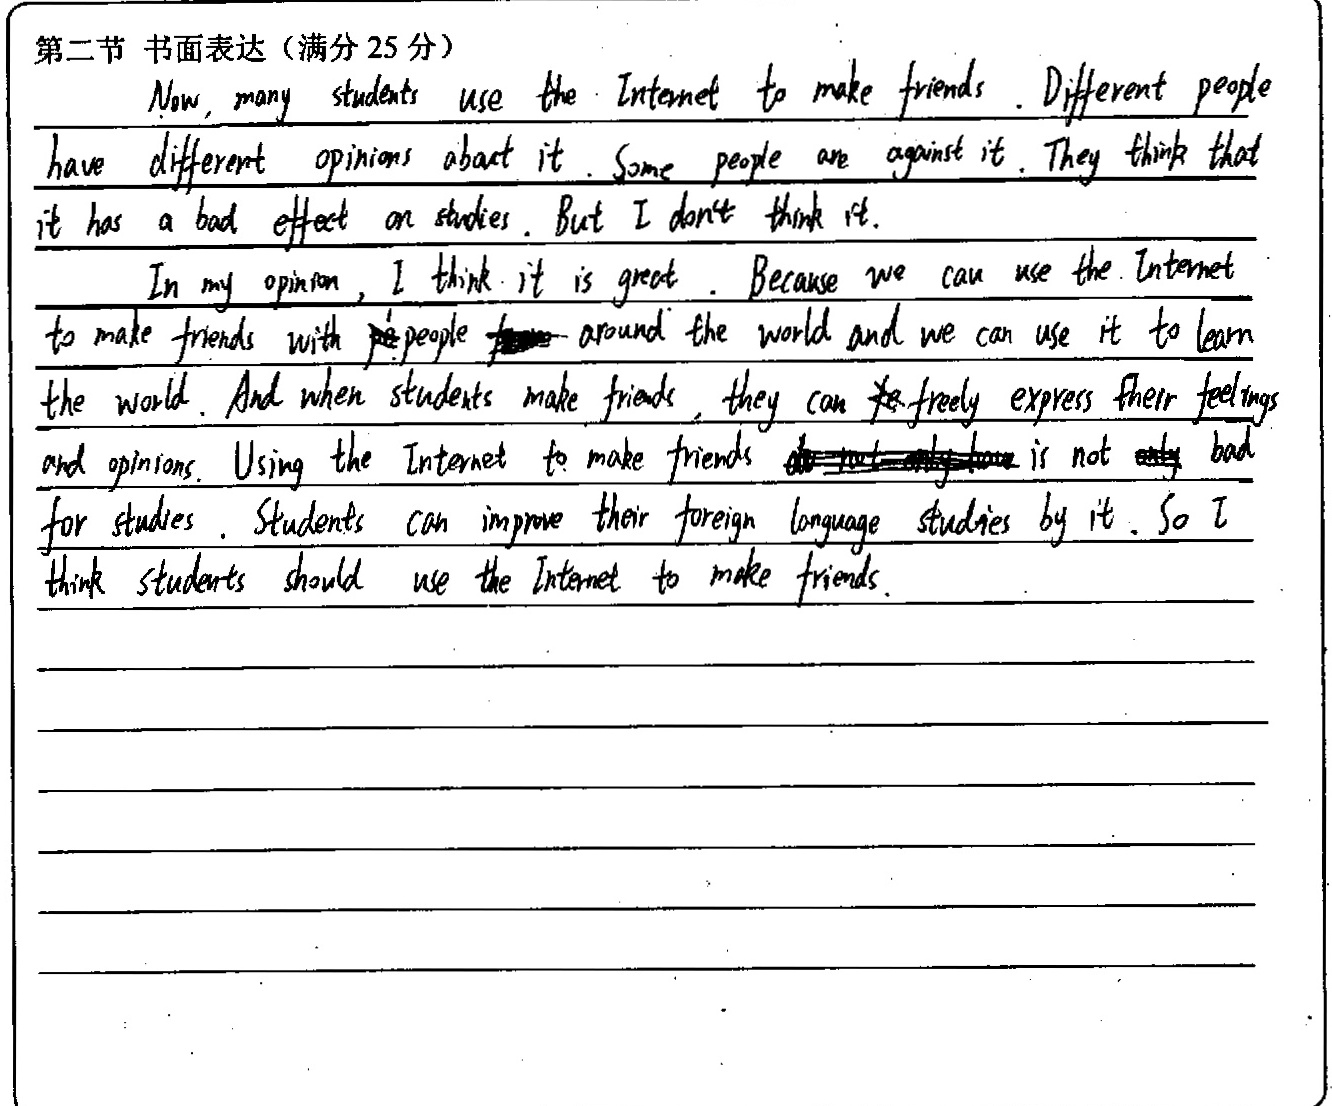 第二节 书面表达（满分 25 分）
Now, many students use the Internet to make friends. Different people
have different opinions about it. Some people are against it. They think that
it has a bad effect on studies. But I don't think it.
In my opinion, I think it is great. Because we can use the Internet
to make friends with people around the world and we can use it to learn
the world. And when students make friends, they can freely express their feelings
and opinions. Using the Internet to make friends is not bad
for studies. Students can improve their foreign language studies by it. So I
think students should use the Internet to make friends.